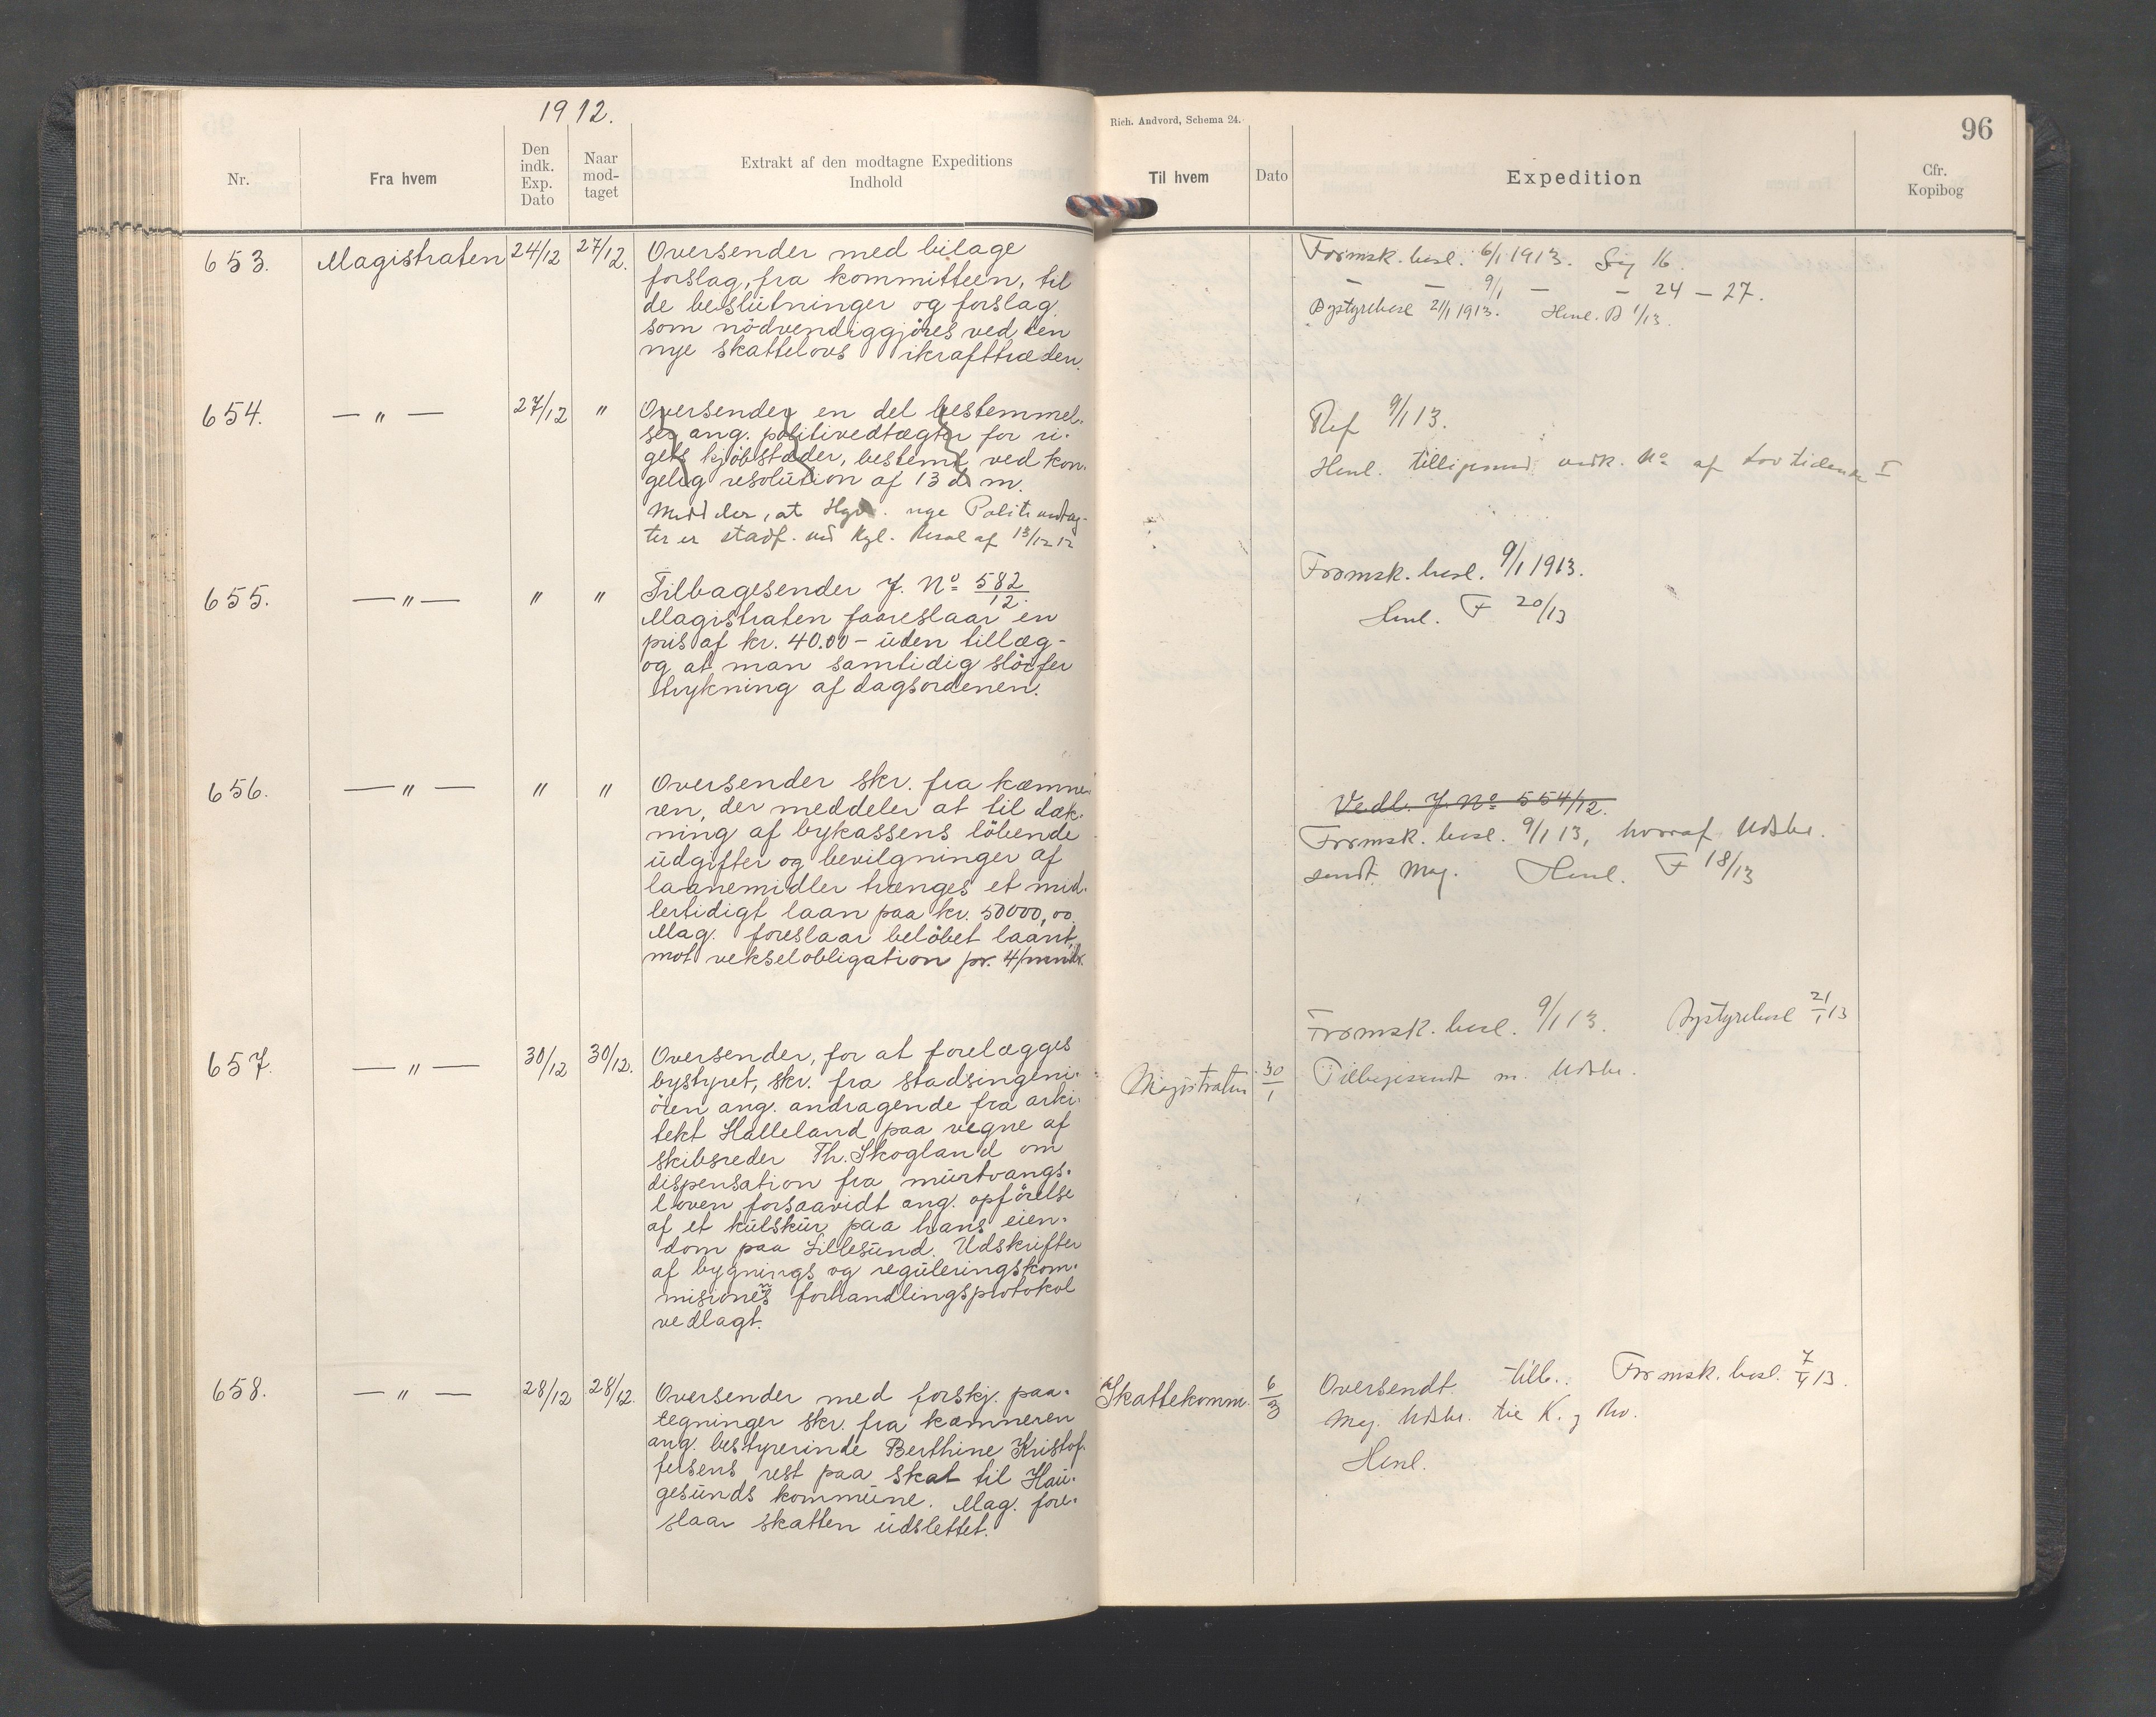 1912.
Nr.
Fra hvem
Den indk. Exp. Dato
Naar mod-taget
Extrakt af den modtagne Expeditions
Indhold
Rich. Andvord, Schema 24.
96
Til hvem
Dato
Expedition
Cfr.
Kopibog
653. Magistraten 24/12 27/12. Oversender med bilage
forslag, fra kommitteen, til
de beslutninger og forslag
som nödvendiggjöres ved den
nye skattelovs ikrafttræden.
Formsk. besl. 6/1 1913. Sag 16.
— — 9/1 — — 24 — 27.
Bystyrebesl 21/1 1913. Henl. B 1/13.
654. — „ — 27/12 „ Oversender en del bestemmel-
ser ang. politivedtægter for ri-
gets kjöbstæder, bestemt ved kon-
gelig resolution af 13 d. m.
Meddeler, at Hgs. nye Politivedtæg-
ter er stadf. ved Kgl. Resol af 13/12 12
Ref 9/1 13.
Henl. tilligemed vedk. No af Lovtidende I
655. — „ — „ „ Tilbagesender J. No 582/12.
Magistraten foareslaar en
pris af kr. 40.00 – uden tillæg –
og at man samtidig slöifer
trykning af dagsordenen.
Formsk. besl. 9/1 1913.
Henl. F 20/13
656. — „ — „ „ Oversender skr. fra kæmne-
ren, der meddeler at til dæk-
ning af bykassens löbende
udgifter og bevilgninger af
laanemidler trænges et mid-
lertidigt laan paa kr. 50000,00.
Mag. foreslaar belöbet laant,
mot vekselobligation pr. 4/mndr.
Vedl. J. No 554/12.
Formsk. besl. 9/1 13, hvoraf Udskr.
sendt Mag. Henl. F 18/13
657. — „ — 30/12 30/12. Oversender, for at forelægges
bystyret, skr. fra stadsingeni-
ören ang. andragende fra arki-
tekt Halleland paa vegne af
skibsreder Th. Skogland om
dispensation fra murtvangs-
loven forsaavidt ang. opförelse
af et kulskur paa hans eien-
dom paa Lillesund. Udskrifter
af bygnings og reguleringskom-
misionens forhandlingsprotokol
vedlagt.
Formsk. besl. 9/1 13. Bystyrebesl 21/1 13
Magistraten 30/1 Tilbagesendt m. Udskr.
658. — „ — 28/12 28/12. Oversender med forskj. paa-
tegninger skr. fra kæmneren
ang. bestyrerinde Berthine Kristof-
fersens rest paa skat til Hau-
gesunds kommune. Mag. fore-
slaar skatten udslettet.
Skattekomm. 6/3 Oversendt tilb. Formsk. besl. 7/4 13.
Mag. Udskr. til K. og
Henl.